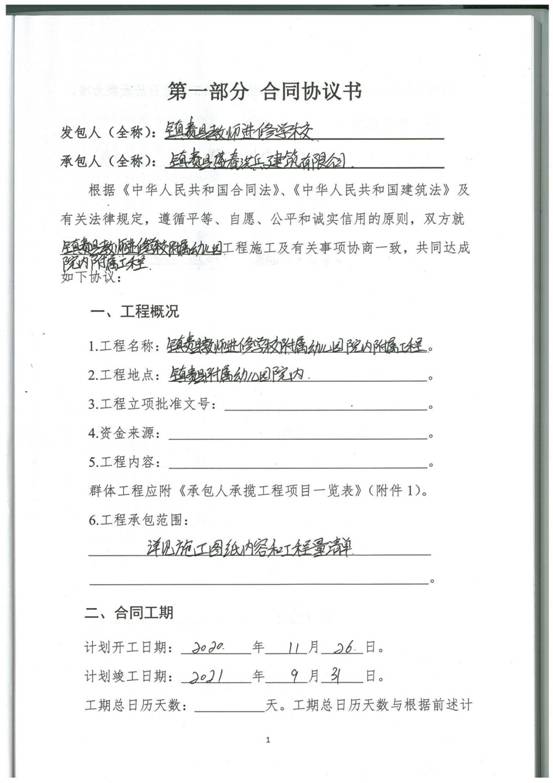 第一部分 合同协议书
发包人（全称）：镇赉县教师进修学校
承包人（全称）：镇赉县 建筑有限公司
根据《中华人民共和国合同法》、《中华人民共和国建筑法》及
有关法律规定，遵循平等、自愿、公平和诚实信用的原则，双方就
镇赉县教师进修学校附属幼儿园工程施工及有关事项协商一致，共同达成
院内附属工程
如下协议：
一、工程概况
1.工程名称：镇赉县教师进修学校附属幼儿园院内附属工程。
2.工程地点：镇赉县附属幼儿园院内。
3.工程立项批准文号：。
4.资金来源：。
5.工程内容：。
群体工程应附《承包人承揽工程项目一览表》（附件1）。
6.工程承包范围：
详见施工图纸内容和工程量清单
。
二、合同工期
计划开工日期：2020.年 11 月 26 日。
计划竣工日期：2021 年 9 月 31 日。
工期总日历天数：天。工期总日历天数与根据前述计
1